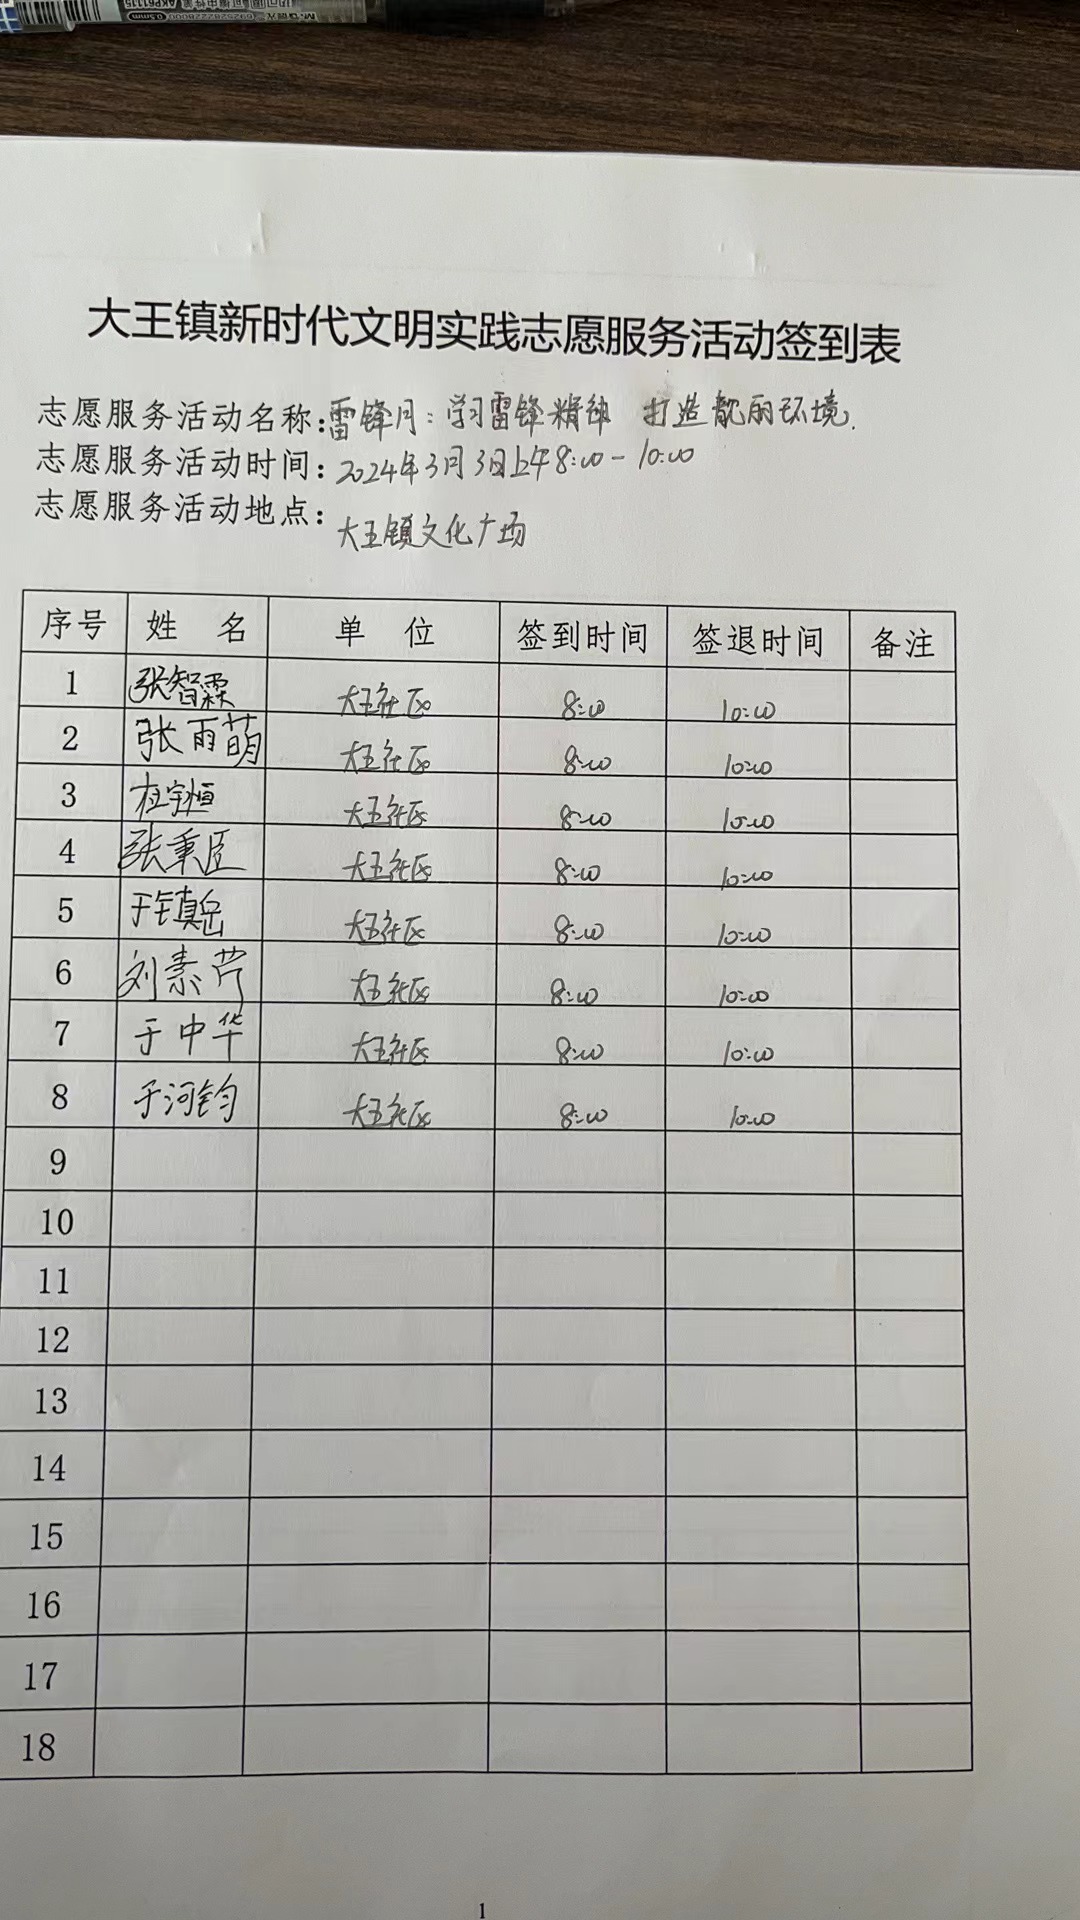 0.5mm
AKP61115
大王镇新时代文明实践志愿服务活动签到表
志愿服务活动名称:雷锋月:学习雷锋精神 打造靓丽环境.
志愿服务活动时间:2024年3月3日上午8:00-10:00
志愿服务活动地点:大王镇文化广场
序号 姓 名 单 位 签到时间 签退时间 备注
1 张智霖 大王社区 8:00 10:00
2 张雨萌 大王社区 8:00 10:00
3 杜宇恒 大王社区 8:00 10:00
4 张秉臣 大王社区 8:00 10:00
5 于镇岳 大王社区 8:00 10:00
6 刘素芹 大王社区 8:00 10:00
7 于中华 大王社区 8:00 10:00
8 于河钧 大王社区 8:00 10:00
9
10
11
12
13
14
15
16
17
18
1